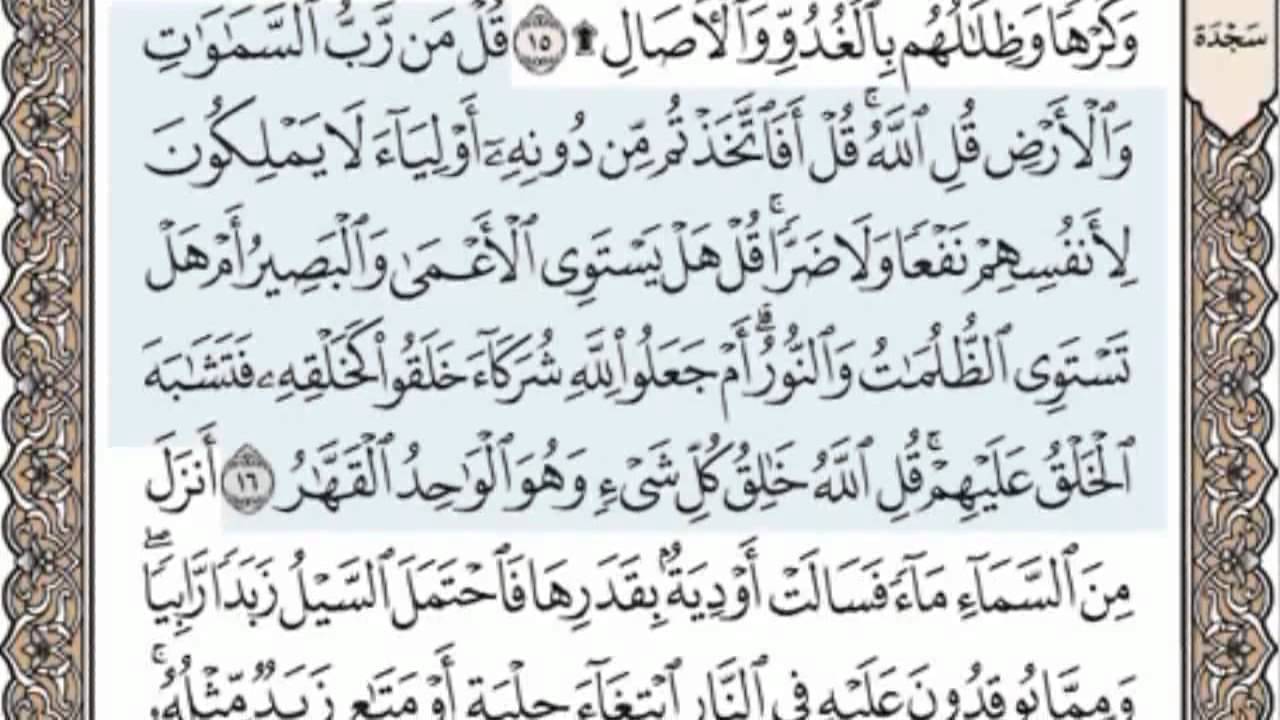 وَكَرْهًا وَظِلَٰلُهُم بِٱلْغُدُوِّ وَٱلْأَصَالِ ۩ ١٥ قُلْ مَن رَّبُّ ٱلسَّمَٰوَٰتِ
سَجْدَة
وَٱلْأَرْضِ قُلِ ٱللَّهُ ۚ قُلْ أَفَٱتَّخَذْتُم مِّن دُونِهِۦٓ أَوْلِيَآءَ لَا يَمْلِكُونَ
لِأَنفُسِهِمْ نَفْعًا وَلَا ضَرًّا ۚ قُلْ هَلْ يَسْتَوِى ٱلْأَعْمَىٰ وَٱلْبَصِيرُ أَمْ هَلْ
تَسْتَوِى ٱلظُّلُمَٰتُ وَٱلنُّورُ ۗ أَمْ جَعَلُوا۟ لِلَّهِ شُرَكَآءَ خَلَقُوا۟ كَخَلْقِهِۦ فَتَشَٰبَهَ
ٱلْخَلْقُ عَلَيْهِمْ ۚ قُلِ ٱللَّهُ خَٰلِقُ كُلِّ شَىْءٍ وَهُوَ ٱلْوَٰحِدُ ٱلْقَهَّٰرُ ١٦ أَنزَلَ
مِنَ ٱلسَّمَآءِ مَآءً فَسَالَتْ أَوْدِيَةٌۢ بِقَدَرِهَا فَٱحْتَمَلَ ٱلسَّيْلُ زَبَدًا رَّابِيًا ۖ
وَمِمَّا يُوقِدُونَ عَلَيْهِ فِى ٱلنَّارِ ٱبْتِغَآءَ حِلْيَةٍ أَوْ مَتَٰعٍ زَبَدٌ مِّثْلُهُۥ ۚ